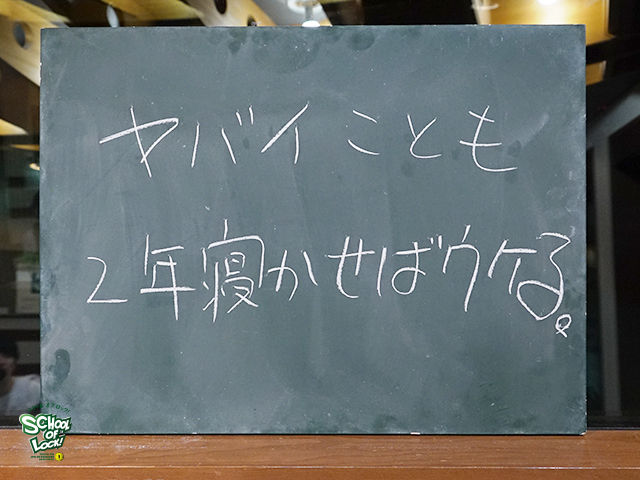 ヤバイことも
2年寝かせばウケる。
SCHOOL
OF
LOCK!